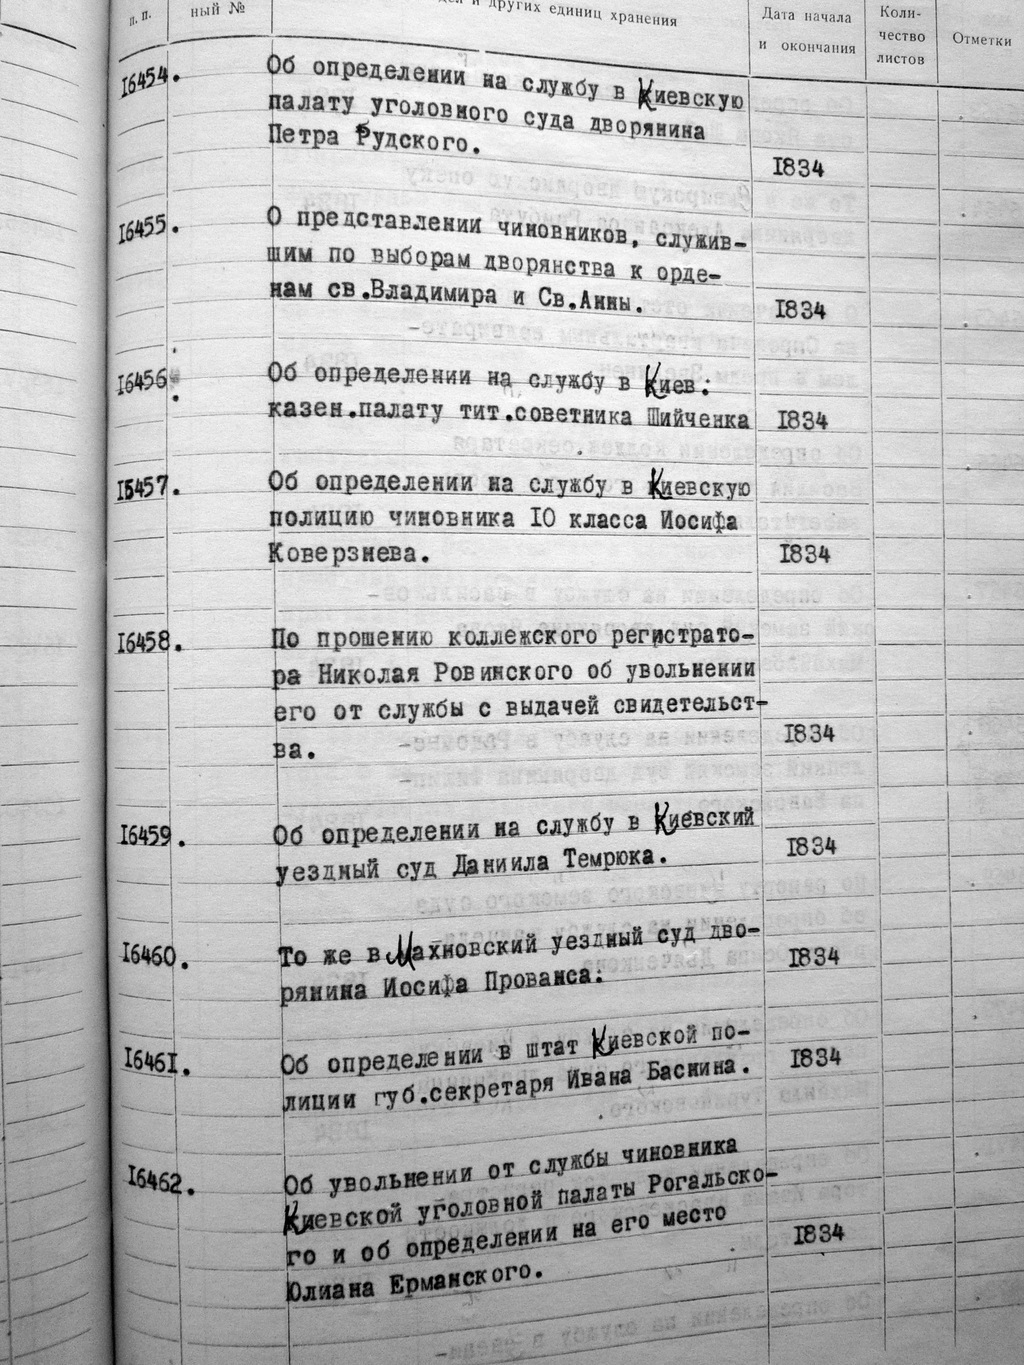 п.п.
ный №
и других единиц хранения
Дата начала
и окончания
Коли-
чество
листов
Отметки
16454.
Об определении на службу в Киевскую
палату уголовного суда дворянина
Петра Рудского.
1834
16455.
О представлении чиновников, служив-
шим по выборам дворянства к орде-
нам св.Владимира и Св.Анны.
1834
16456.
Об определении на службу в Киев:
казен.палату тит.советника Шийченка
1834
15457.
Об определении на службу в Киевскую
полицию чиновника 10 класса Иосифа
Коверзнева.
1834
16458.
По прошению коллежского регистрато-
ра Николая Ровинского об увольнении
его от службы с выдачей свидетельст-
ва.
1834
16459.
Об определении на службу в Киевский
уездный суд Даниила Темрюка.
1834
16460.
То же в Махновский уездный суд дво-
рянина Иосифа Прованса:
1834
16461.
Об определении в штат Киевской по-
лиции губ.секретаря Ивана Баснина.
1834
16462.
Об увольнении от службы чиновника
Киевской уголовной палаты Рогальско-
го и об определении на его место
Юлиана Ерманского.
1834